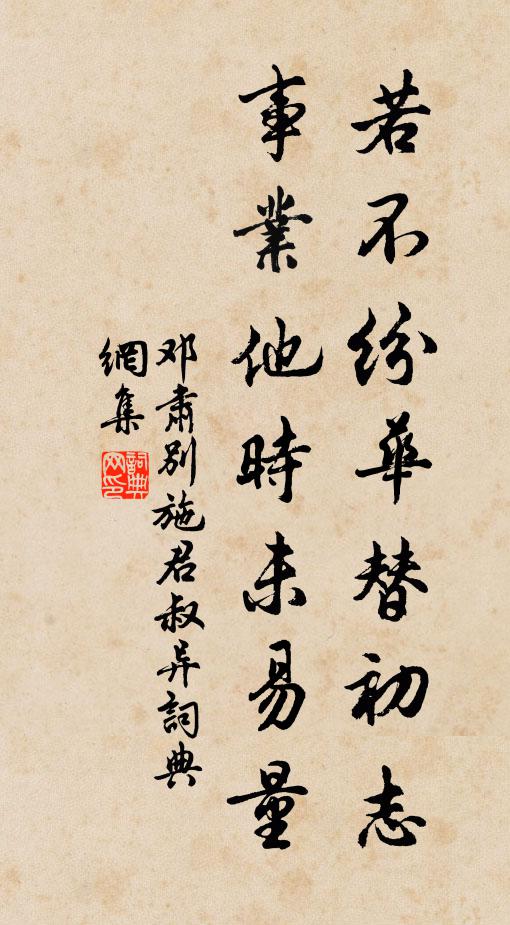 若不紛華替初志
事業他時未易量
邓肅別施君叔异詞典
網集
詞典网印